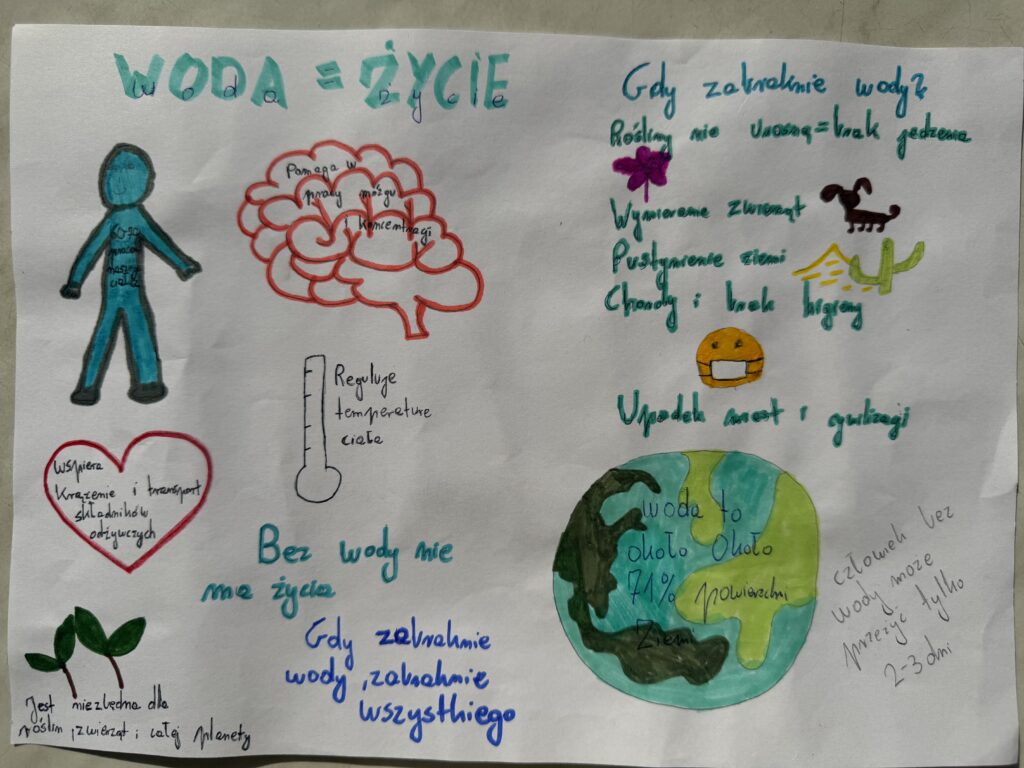 WODA = ŻYCIE
woda życie
60-90
naszego
ciała
Pomaga w
pracy mózgu
koncentracji
Reguluje
temperature
ciała
Wspiera
krążenie i transport
składników
odżywczych
Bez wody nie
ma życia
Gdy zabraknie
wody, zabraknie
wszystkiego
Jest niezbędna dla
roślin, zwierząt i całej planety
Gdy zabraknie wody?
Rośliny nie urosną = brak jedzenia
Wymieranie zwierząt
Pustynienie ziemi
Choroby i brak higieny
Upadek miast i cywilizacji
woda to
około około
71% powierzchni
Ziemi
człowiek bez
wody może
przeżyć tylko
2-3 dni